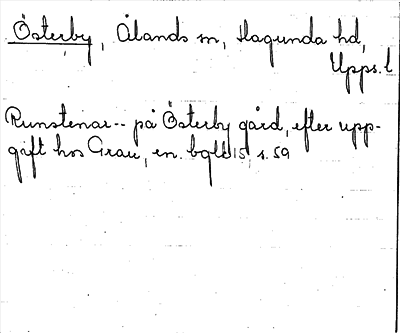 Österby, Ålands sn, Hagunda hd,
Upps. l
Runstenar -- på Österby gård, efter upp-
gift hos Grau, en. bglt 15, s. 59